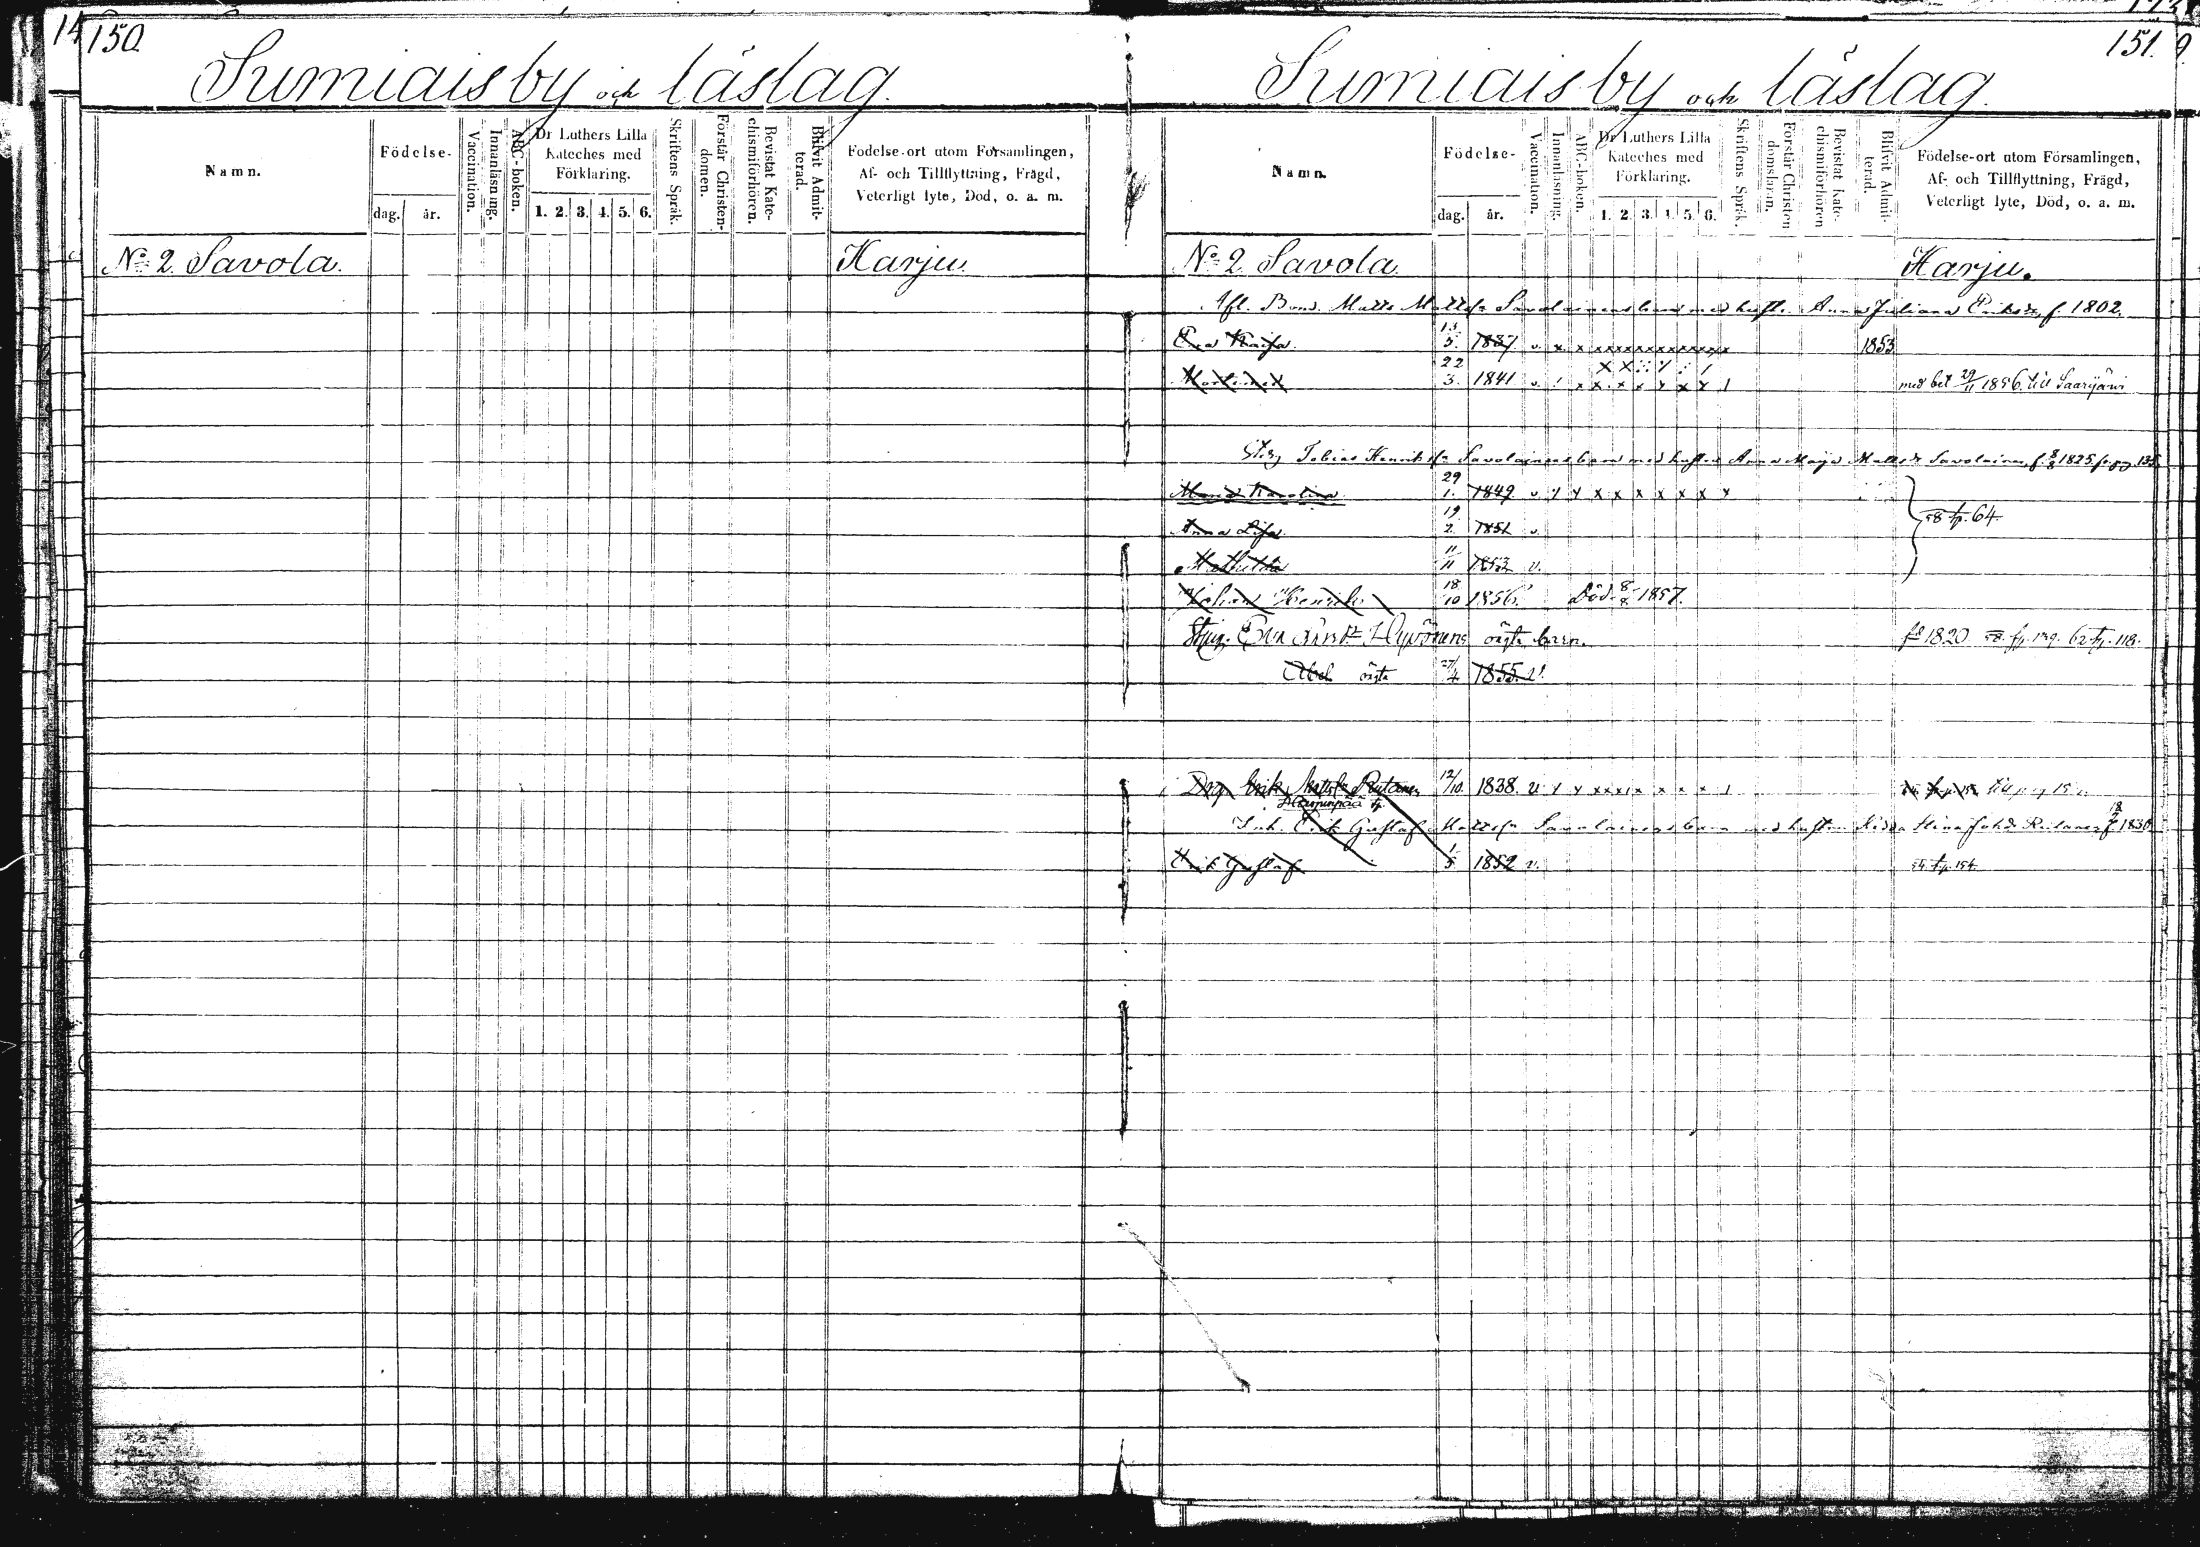 150.
Sumiais by och läslag.
Namn.
Födelse-
dag. år.
Vaccination.
Innanläsning.
ABC-boken.
Dr Luthers Lilla Kateches med Förklaring.
1. 2. 3. 4. 5. 6.
Skriftens Språk.
Förstår Christendomen.
Bevistat Katechismiförhören.
Blifvit Admitterad.
Födelse-ort utom Församlingen,
Af- och Tillflyttning, Frägd,
Veterligt lyte, Död, o. a. m.
No 2 Savola. Harju
151.
Sumiais by och läslag.
Namn.
Födelse-
dag. år.
Vaccination.
Innanläsning.
ABC-boken.
Dr Luthers Lilla Kateches med Förklaring.
1. 2. 3. 4. 5. 6.
Skriftens Språk.
Förstår Christendomslaran.
Bevistat Katechismiförhören
Blifvit Admitterad.
Födelse-ort utom Församlingen,
Af- och Tillflyttning, Frägd,
Veterligt lyte, Död, o. a. m.
No 2 Savola. Harju.
Afl. Bond. Matts Mattss Savolainens barn med hust. Anna Juliana Eriksdr f. 1802.
Eva Kaisa 13/5. 1837 v. x x x x x x x x x x x x x x 1853
22/3. 1841 v. med bet 29/11 1856 till Saarijärvi
Tobias Henrikss Savolainens barn med hustru Anna Maija Mattsdr Savolainen, f. 8/8 1825
Maria Karolina 29/1. 1849 v x x x x x x x x
58 fp. 64.
Anna Lisa 19/2 1851 v.
Mathilda 11/11 1853 v.
Johan Henrik 18/10 1856. Död 8/8 1857.
Eva Hyvönens oägta barn. fd 1820 58. fp. 62 fp. 118.
Abel oägta 27/4 1855 v.
Drg Erik Mattss Rutanen 12/10. 1838. v
Erik Gustaf Mattss Savolainens barn med hustru Stina Johdr Rutanen f 1830
Erik Gustaf 1/5 1852 v. 54 fp. 154